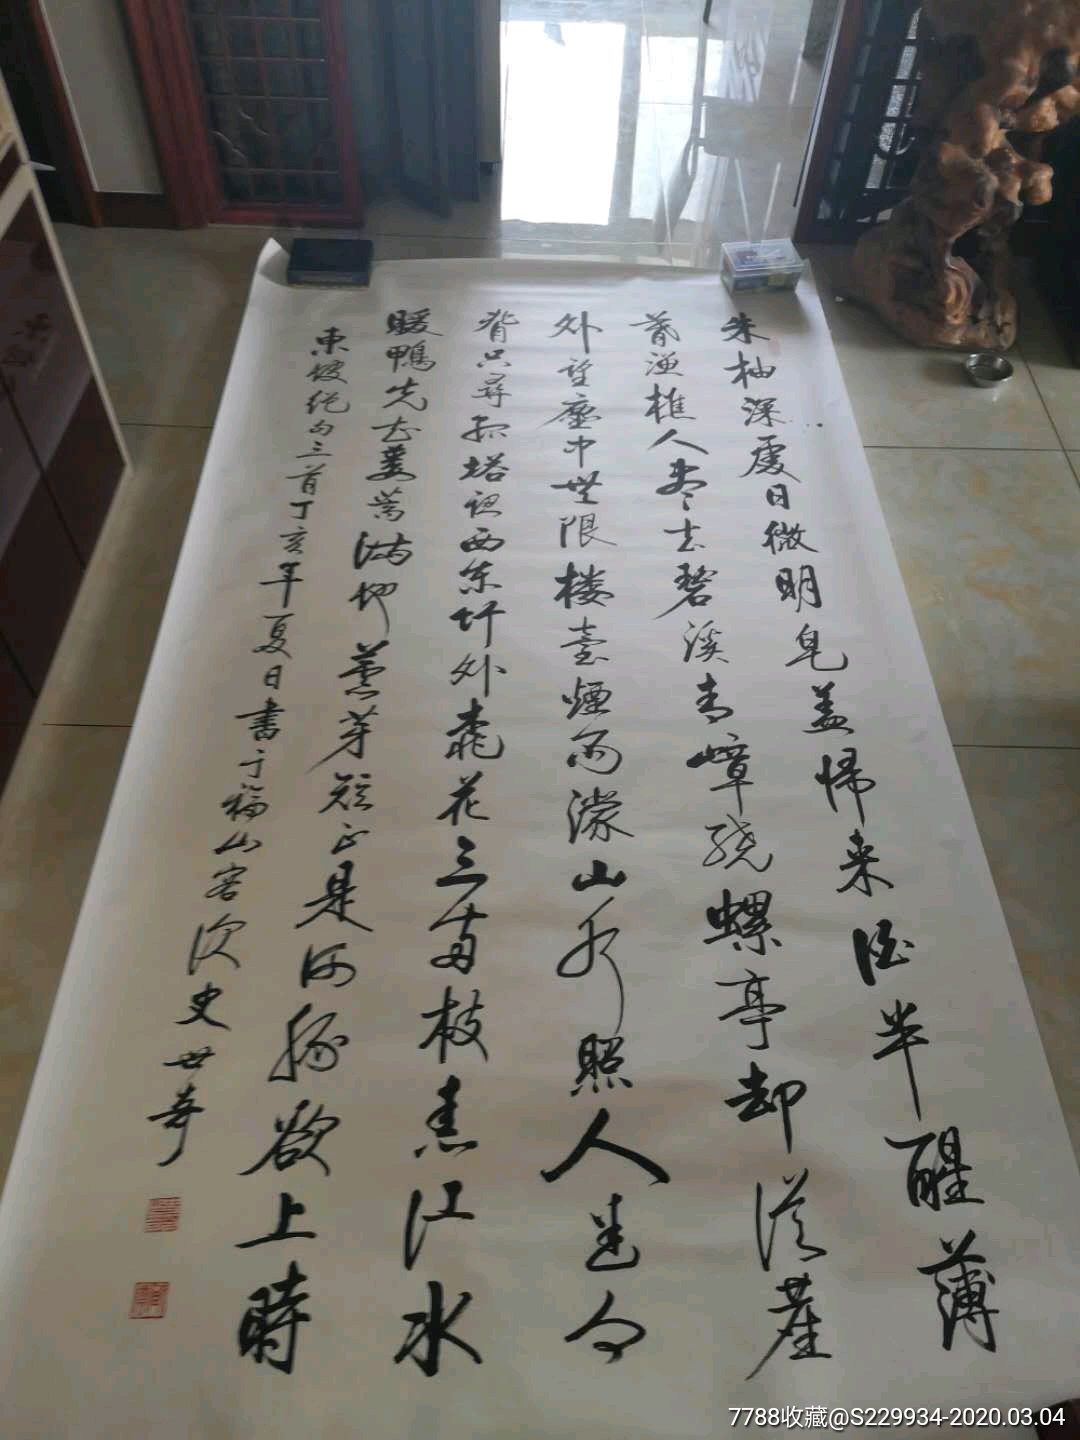 朱柚深處日微明皂蓋帰来酒半醒薄
暮渔樵人尽去碧溪青嶂繞螺亭却從塵
外望塵中無限楼臺煙雨濛山水照人迷向
背只尋孤塔認西東竹外桃花三两枝春江水
暖鴨先知蔞蒿满地蘆芽短正是河豚欲上時
東坡绝句三首丁亥年夏日書于福山客次史世奇
7788收藏@S229934-2020.03.04